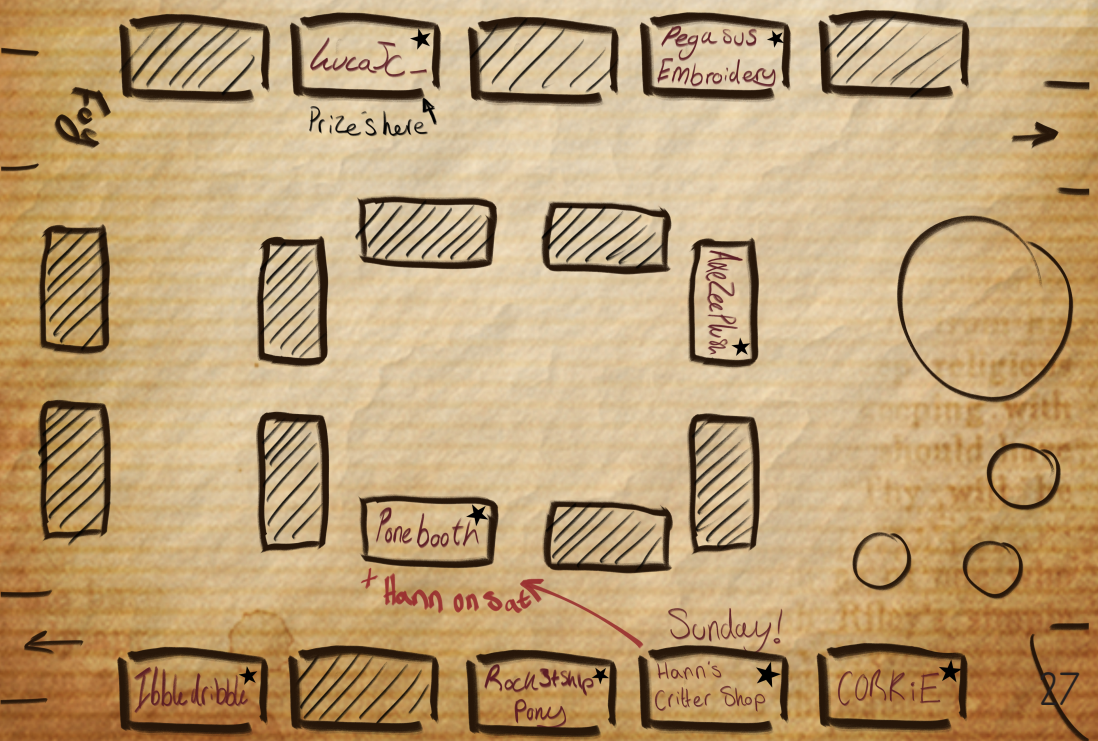 LucaJC_
Pegasus
Embroidery
Prize's here
AxeZeePlush
religious
with
should
Ponebooth
+ Hann on Sat
Sunday!
Ibbledribble
RockStship
Pony
Hann's
Critter Shop
CORKiE
27